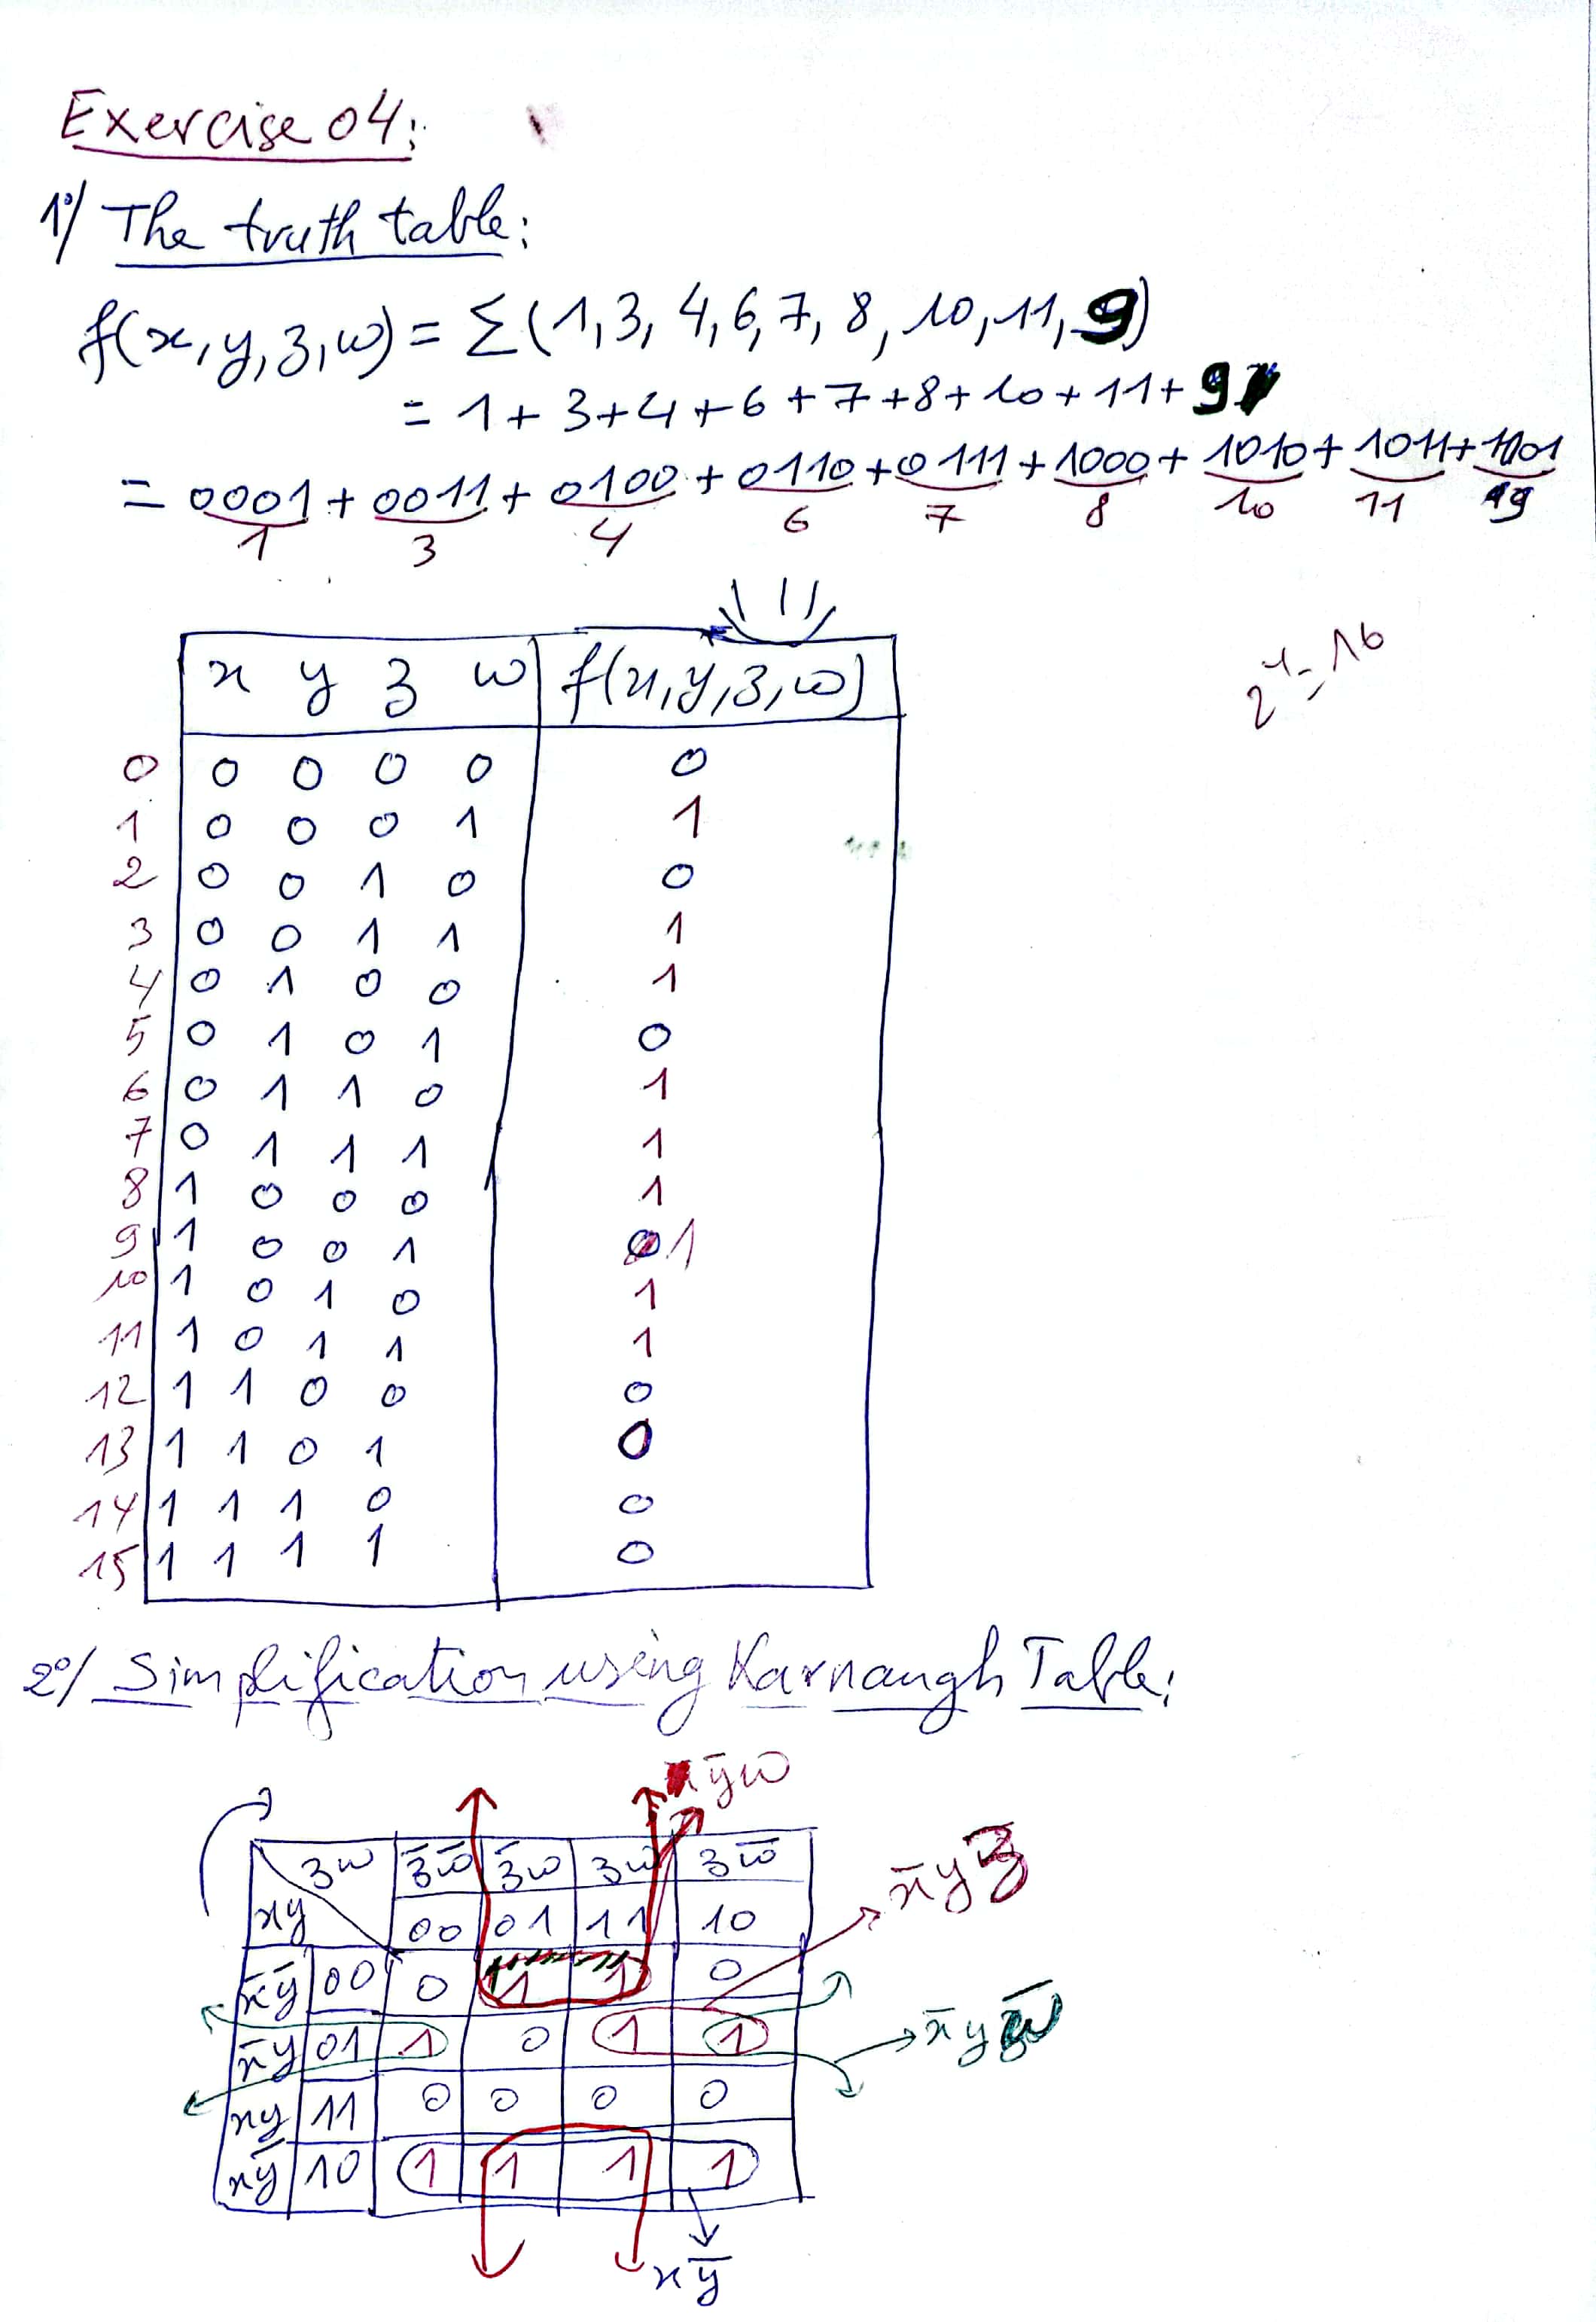 Exercise 04:
1°/ The truth table:
f(x,y,z,w) = Σ(1,3,4,6,7,8,10,11,9)
= 1+3+4+6+7+8+10+11+9
= 0001 + 0011 + 0100 + 0110 + 0111 + 1000 + 1010 + 1011 + 1001
1 3 4 6 7 8 10 11 9
2⁴=16
x y z w f(x,y,z,w)
0 0 0 0 0 0
1 0 0 0 1 1
2 0 0 1 0 0
3 0 0 1 1 1
4 0 1 0 0 1
5 0 1 0 1 0
6 0 1 1 0 1
7 0 1 1 1 1
8 1 0 0 0 1
9 1 0 0 1 1
10 1 0 1 0 1
11 1 0 1 1 1
12 1 1 0 0 0
13 1 1 0 1 0
14 1 1 1 0 0
15 1 1 1 1 0
2°/ Simplification using Karnaugh Table:
y̅w
zw z̅w̅ z̅w zw zw̅
x̅yz
xy 00 01 11 10
x̅y̅ 00 0 1 1 0
x̅y 01 1 0 1 1
x̅yw̅
xy 11 0 0 0 0
xy̅ 10 1 1 1 1
xy̅